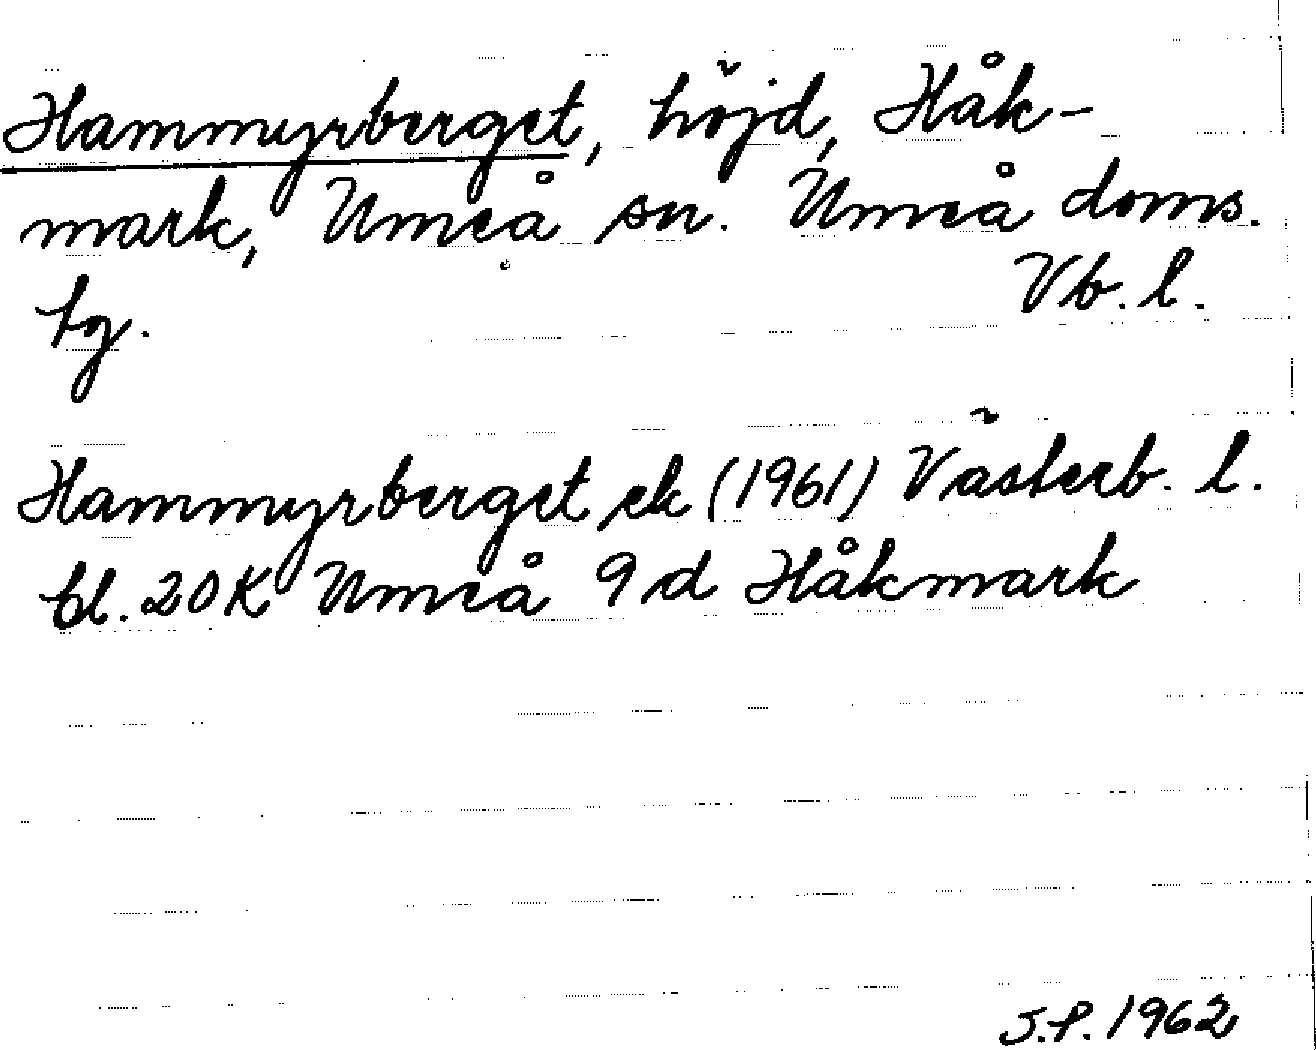 Hammyrberget, höjd, Håk-
mark, Umeå sn. Umeå doms.
hg. Vb. l.
Hammyrberget ek (1961) Västerb. l.
bl. 20K Umeå 9d Håkmark
J.P. 1962